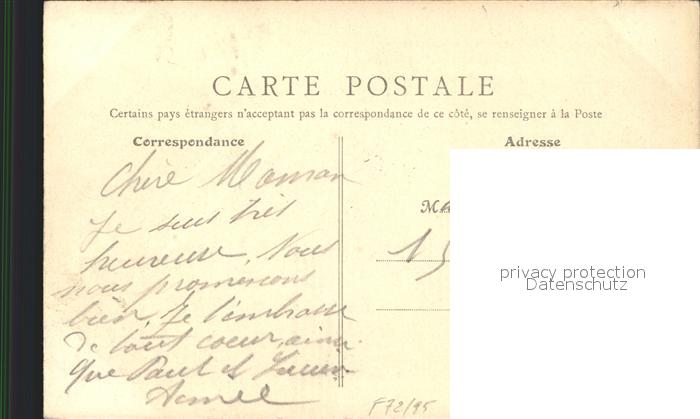 CARTE POSTALE
Certains pays étrangers n'acceptant pas la correspondance de ce côté, se renseigner à la Poste
Correspondance
Adresse
Chère Maman
Je suis très
heureuse. Nous
nous promenons
bien. Je t'embrasse
de tout coeur, ainsi
que Paul et Lucien
M
15
privacy protection
Datenschutz
F72/95